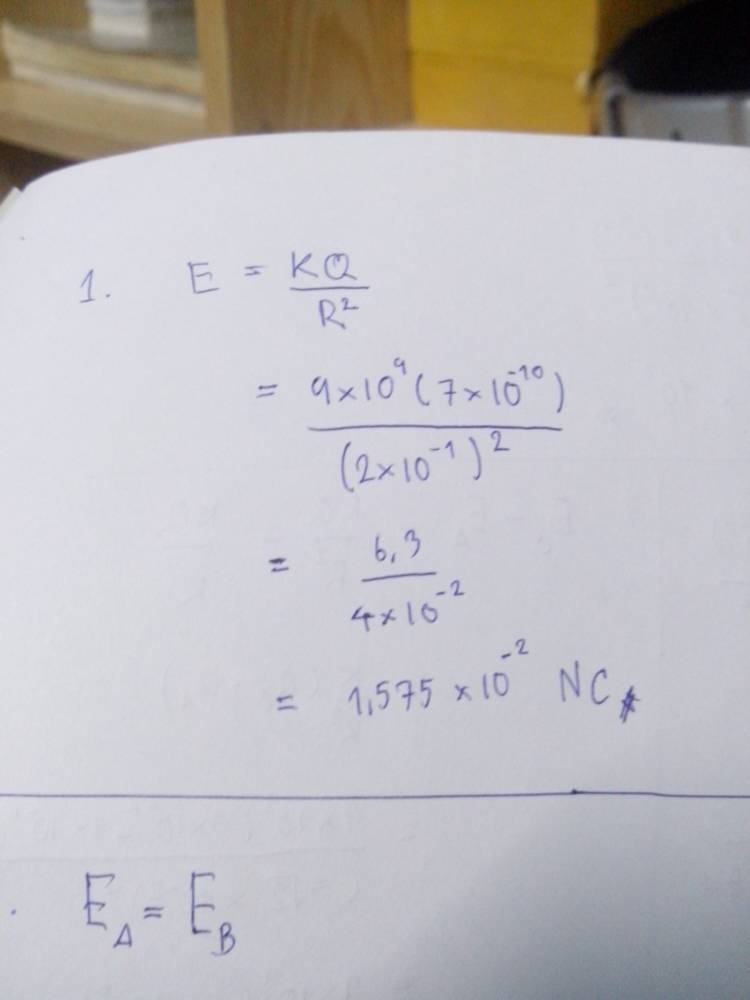 1. E = KQ / R²
= 9×10⁹ (7×10⁻¹⁰) / (2×10⁻¹)²
= 6,3 / 4×10⁻²
= 1,575 × 10⁻² NC
. E_A = E_B